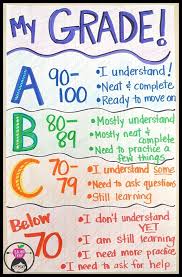 My GRADE!
A 90- • I understand!
100 • Neat & complete
• Ready to move on
B 80- • Mostly understand
89 • Mostly neat & complete
• Need to practice a few things
C 70- • I understand some
79 • Need to ask questions
• Still learning
Below • I don't understand YET
70 • I am still learning
• I need more practice
• I need to ask for help